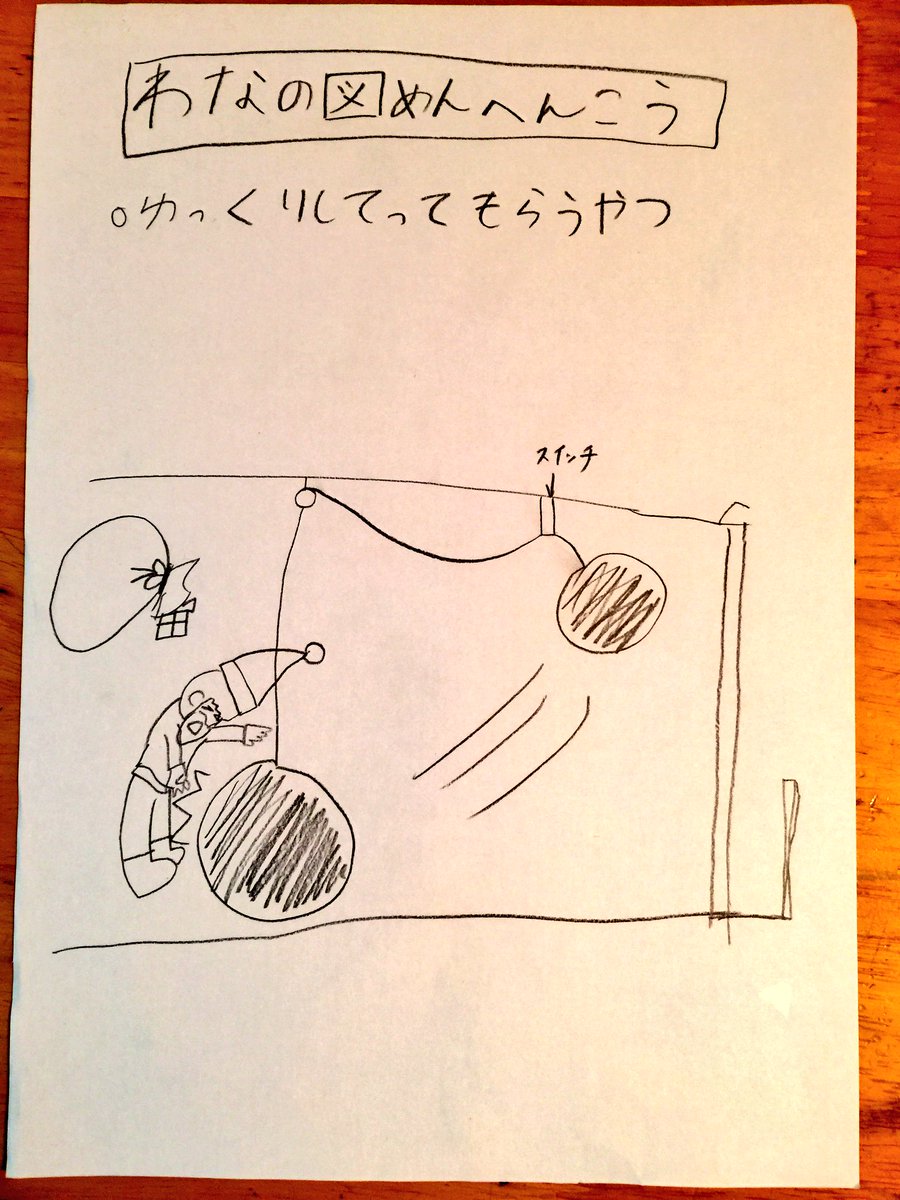 わなの図めんへんこう
○ゆっくりしてってもらうやつ
スイッチ